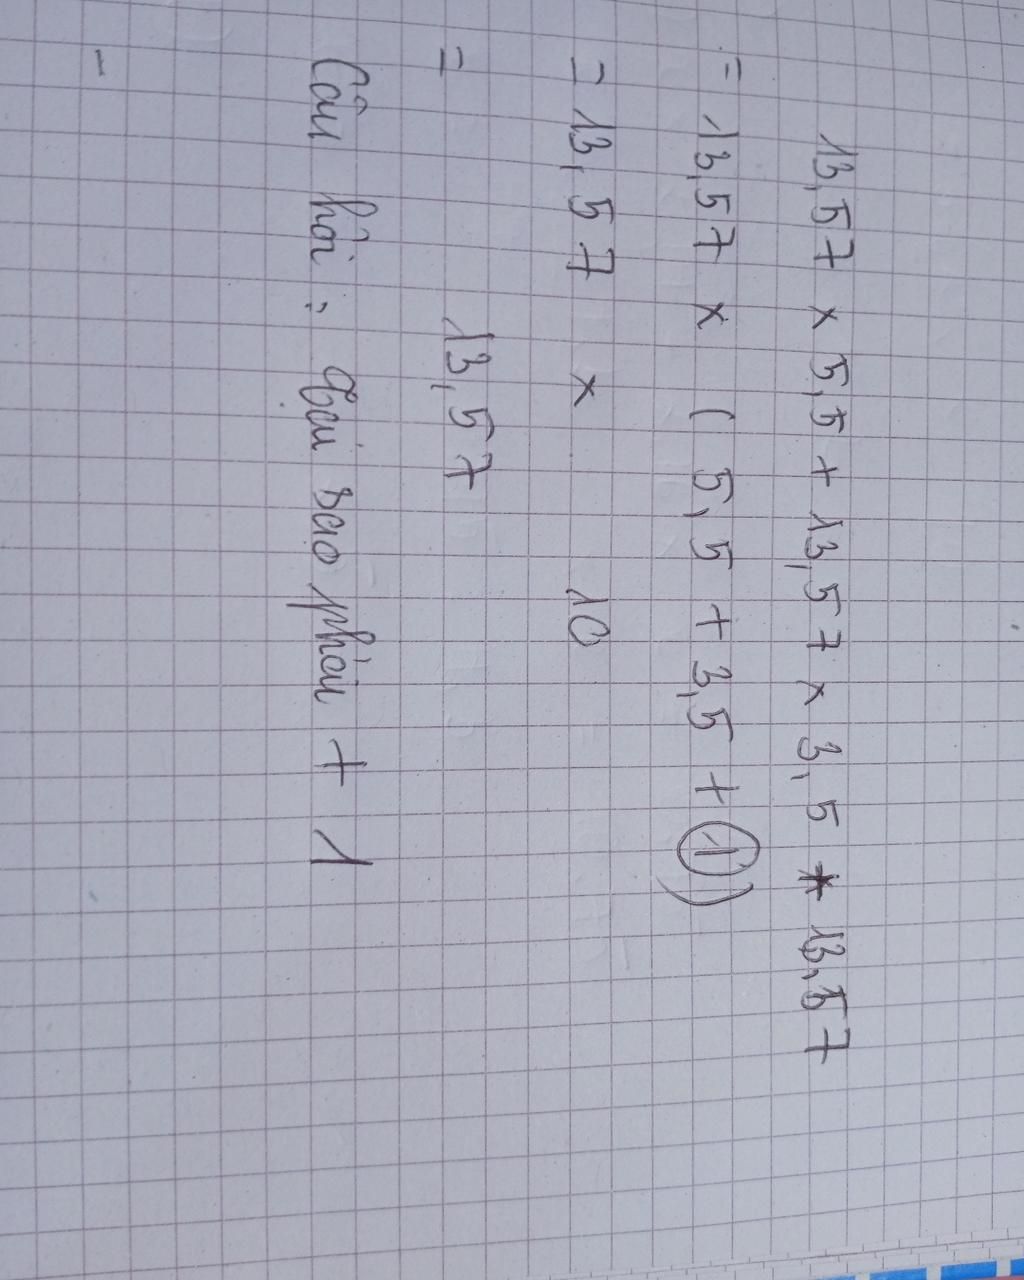 13,57 x 5,5 + 13,57 x 3,5 * 13,57
= 13,57 x ( 5,5 + 3,5 + 1 )
= 13,57 x 10
= 13,57
Câu hỏi : Tại sao phải + 1
-